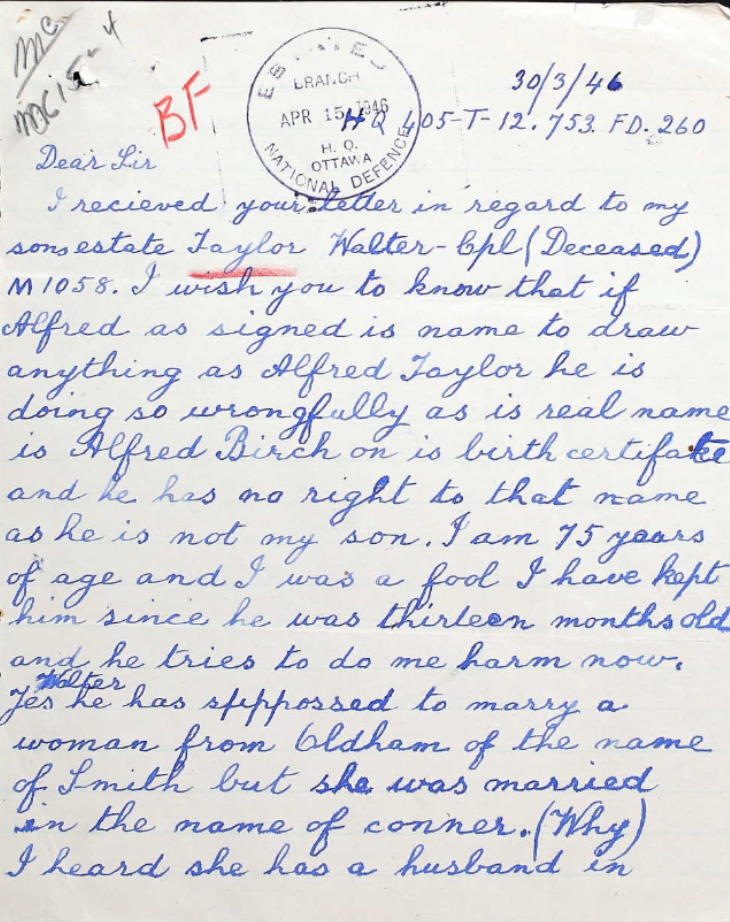 MC
MC 15-4
BF
ESTATES
BRANCH
APR 15 1946
H. Q.
OTTAWA
NATIONAL DEFENCE
30/3/46
HQ 405-T-12.753. FD. 260
Dear Sir
I recieved your letter in regard to my
sons estate Taylor Walter-Cpl (Deceased)
M1058. I wish you to know that if
Alfred as signed is name to draw
anything as Alfred Taylor he is
doing so wrongfully as is real name
is Alfred Birch on is birth certifate
and he has no right to that name
as he is not my son. I am 75 years
of age and I was a fool I have kept
him since he was thirteen months old
and he tries to do me harm now.
Walter
Yes he has suppossed to marry a
woman from Oldham of the name
of Smith but she was married
in the name of conner. (Why)
I heard she has a husband in